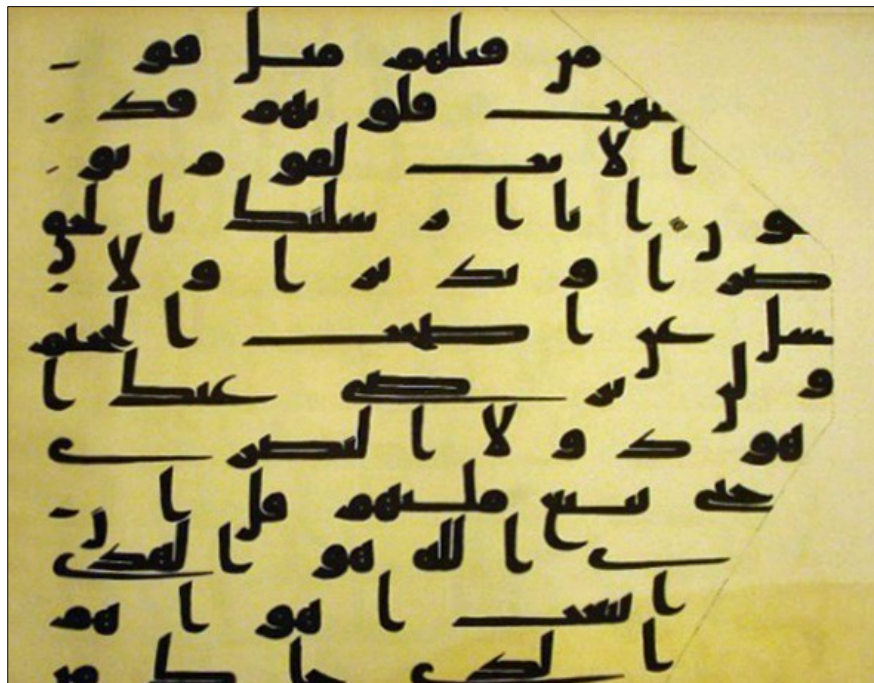 من قبلهم مثل قو
بهت قلوبهم قد
ا الايت لقوم يو
و ن انا ارسلنك بالحق
بشيرا و نذيرا و لا
تسل عن اصحب الجحيم
و لن ترضى عنك ا
هود و لا النصرى
حتى تتبع ملتهم قل ان
ى الله هو الهدى
اتبعت اهواهم
الذي جاك من